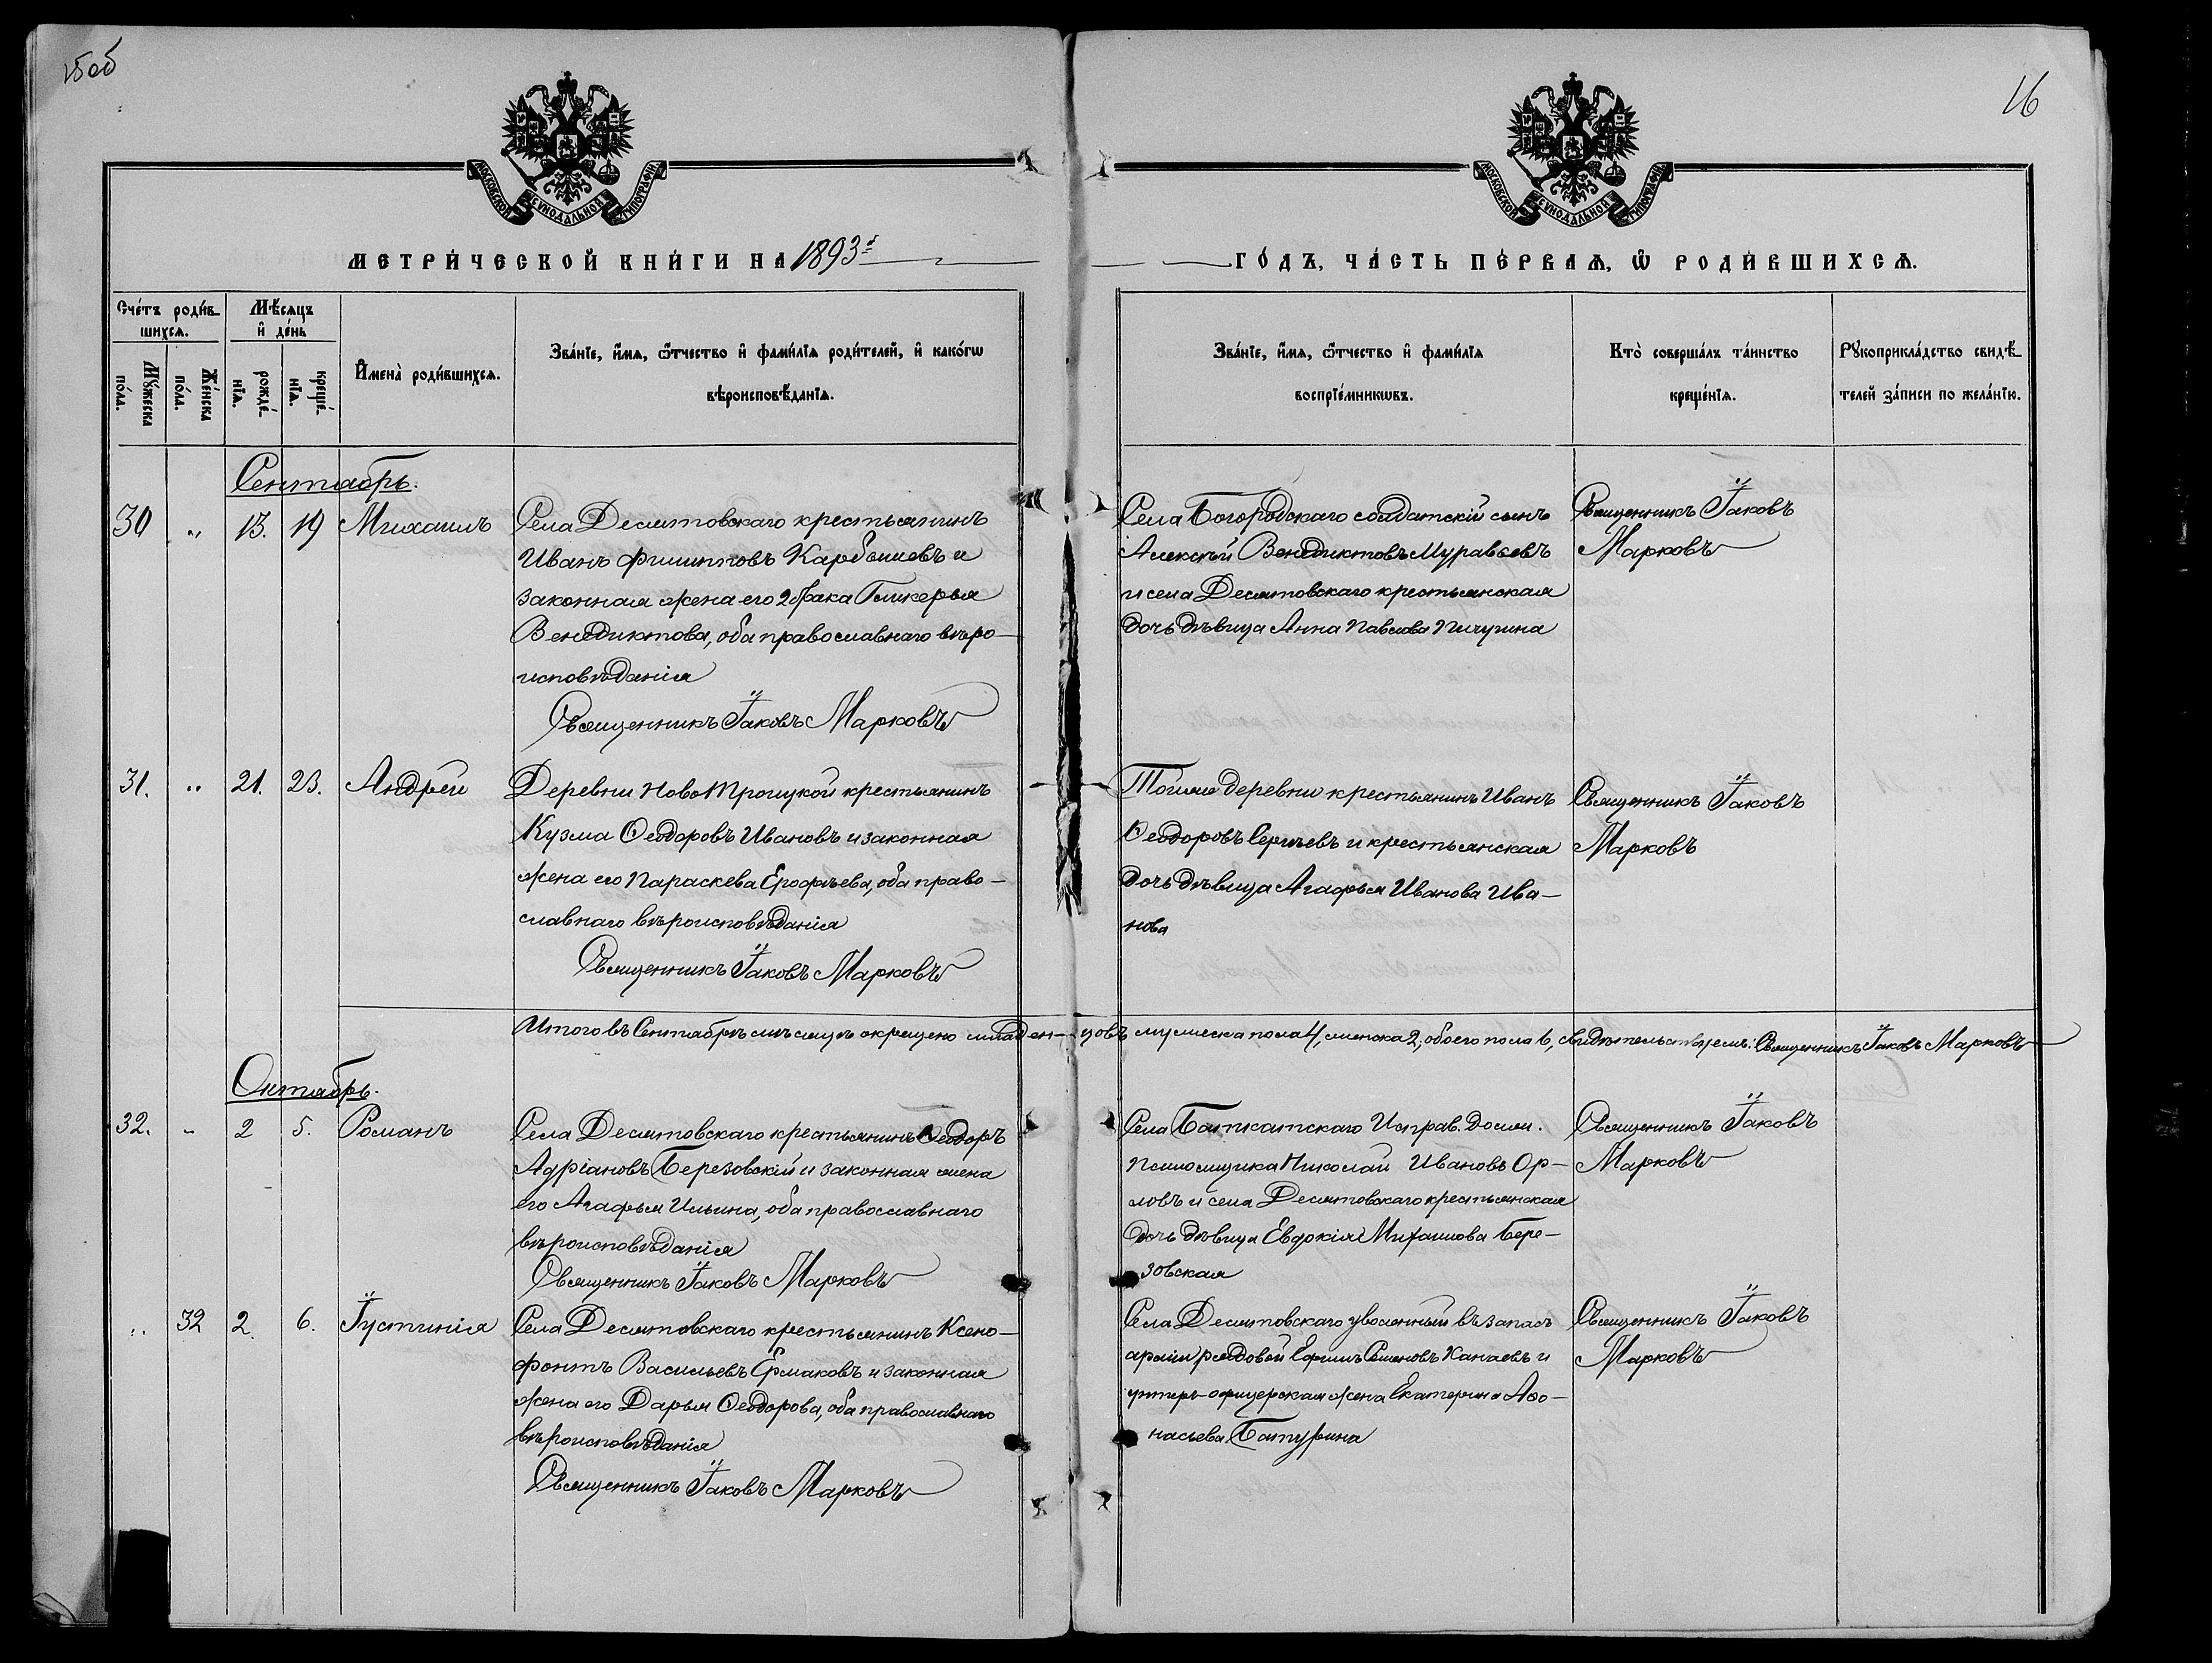 15об
16
МОСКОВСКОЙ СѴНОДАЛЬНОЙ ТИПОГРАФІИ
МОСКОВСКОЙ СѴНОДАЛЬНОЙ ТИПОГРАФІИ
МЕТРИ́ЧЕСКОЙ КНИ́ГИ НА 1893й
ГО́ДЪ, ЧА́СТЬ ПЕ́РВАѦ, Ѡ҆ РОДИ́ВШИХСѦ.
Сче́тъ роди́в-
шихсѧ.
Мѣ́сѧцъ
и҆ де́нь
Мꙋ́жеска
по́ла.
Же́нска
по́ла.
рожде́-
нїѧ.
креще́-
нїѧ.
И҆мена̀ роди́вшихсѧ.
Зва́нїе, и҆́мѧ, ѻ҆́тчество и҆ фами́лїѧ роди́телей, и҆ како́гѡ
вѣроисповѣ́данїѧ.
Зва́нїе, и҆́мѧ, ѻ҆́тчество и҆ фами́лїѧ
воспрїе́мникѡвъ.
Кто̀ соверша́лъ та́инство
креще́нїѧ.
Рꙋкоприкла́дство свидѣ́-
телей за́писи по жела́нїю.
Сентябрь.
30 " 13. 19 Михаилъ
Села Десятовскаго крестьянинъ
Иванъ Филипповъ Карбышевъ и
законная жена его 2 брака Гликерья
Венедиктова, оба православнаго веро-
исповѣданія
Священникъ Іаковъ Марковъ
Села Богородскаго солдатскій сынъ
Алексѣй Венедиктовъ Муравьевъ
и села Десятовскаго крестьянская
дочь дѣвица Анна Павлова Пичугина
Священникъ Іаковъ
Марковъ
31. " 21. 23. Андрей
Деревни НовоТроицкой крестьянинъ
Кузма Ѳеодоровъ Ивановъ и законная
жена его Параскева Ерофѣева, оба право-
славнаго вѣроисповѣданія
Священникъ Іаковъ Марковъ
Тойже деревни крестьянинъ Иванъ
Ѳеодоровъ Сергѣевъ и крестьянская
дочь дѣвица Агафья Иванова Ива-
нова
Священникъ Іаковъ
Марковъ
Итого въ Сентябрѣ мѣсяцѣ окрещено младен-цовъ мужеска пола 4, женска 2, обоего пола 6, свидѣтельствуемъ: Священникъ Іаковъ Марковъ
Октябрь.
32. " 2 5. Романъ
Села Десятовскаго крестьянинъ Ѳеодоръ
Адріановъ Березовскій и законная жена
его Агафья Ильина, оба православнаго
вѣроисповѣданія
Священникъ Іаковъ Марковъ
Села Баткатскаго Исправ. долж.
Псаломщика Николай Ивановъ Ор-
ловъ и села Десятовскаго крестьянская
дочь дѣвица Евдокія Михаилова Бере-
зовская
Священникъ Іаковъ
Марковъ
" 32 2. 6. Іустинія
Села Десятовскаго крестьянинъ Ксено-
фонтъ Васильевъ Ермаковъ и законная
жена его Дарья Ѳеодорова, оба православнаго
вѣроисповѣданія
Священникъ Іаковъ Марковъ
Села Десятовскаго уволенный въ запасъ
арміи рядовой Ефимъ Семеновъ Канаевъ и
унтеръ-офицерская жена Екатерина Аѳо-
насьева Батурина
Священникъ Іаковъ
Марковъ